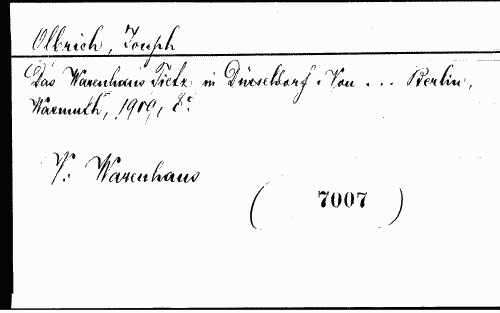 Olbrich, Joseph
Das Warenhaus Tietz in Düsseldorf. Von ... Berlin,
Wasmuth, 1909, 8º
V: Warenhaus
( 7007 )